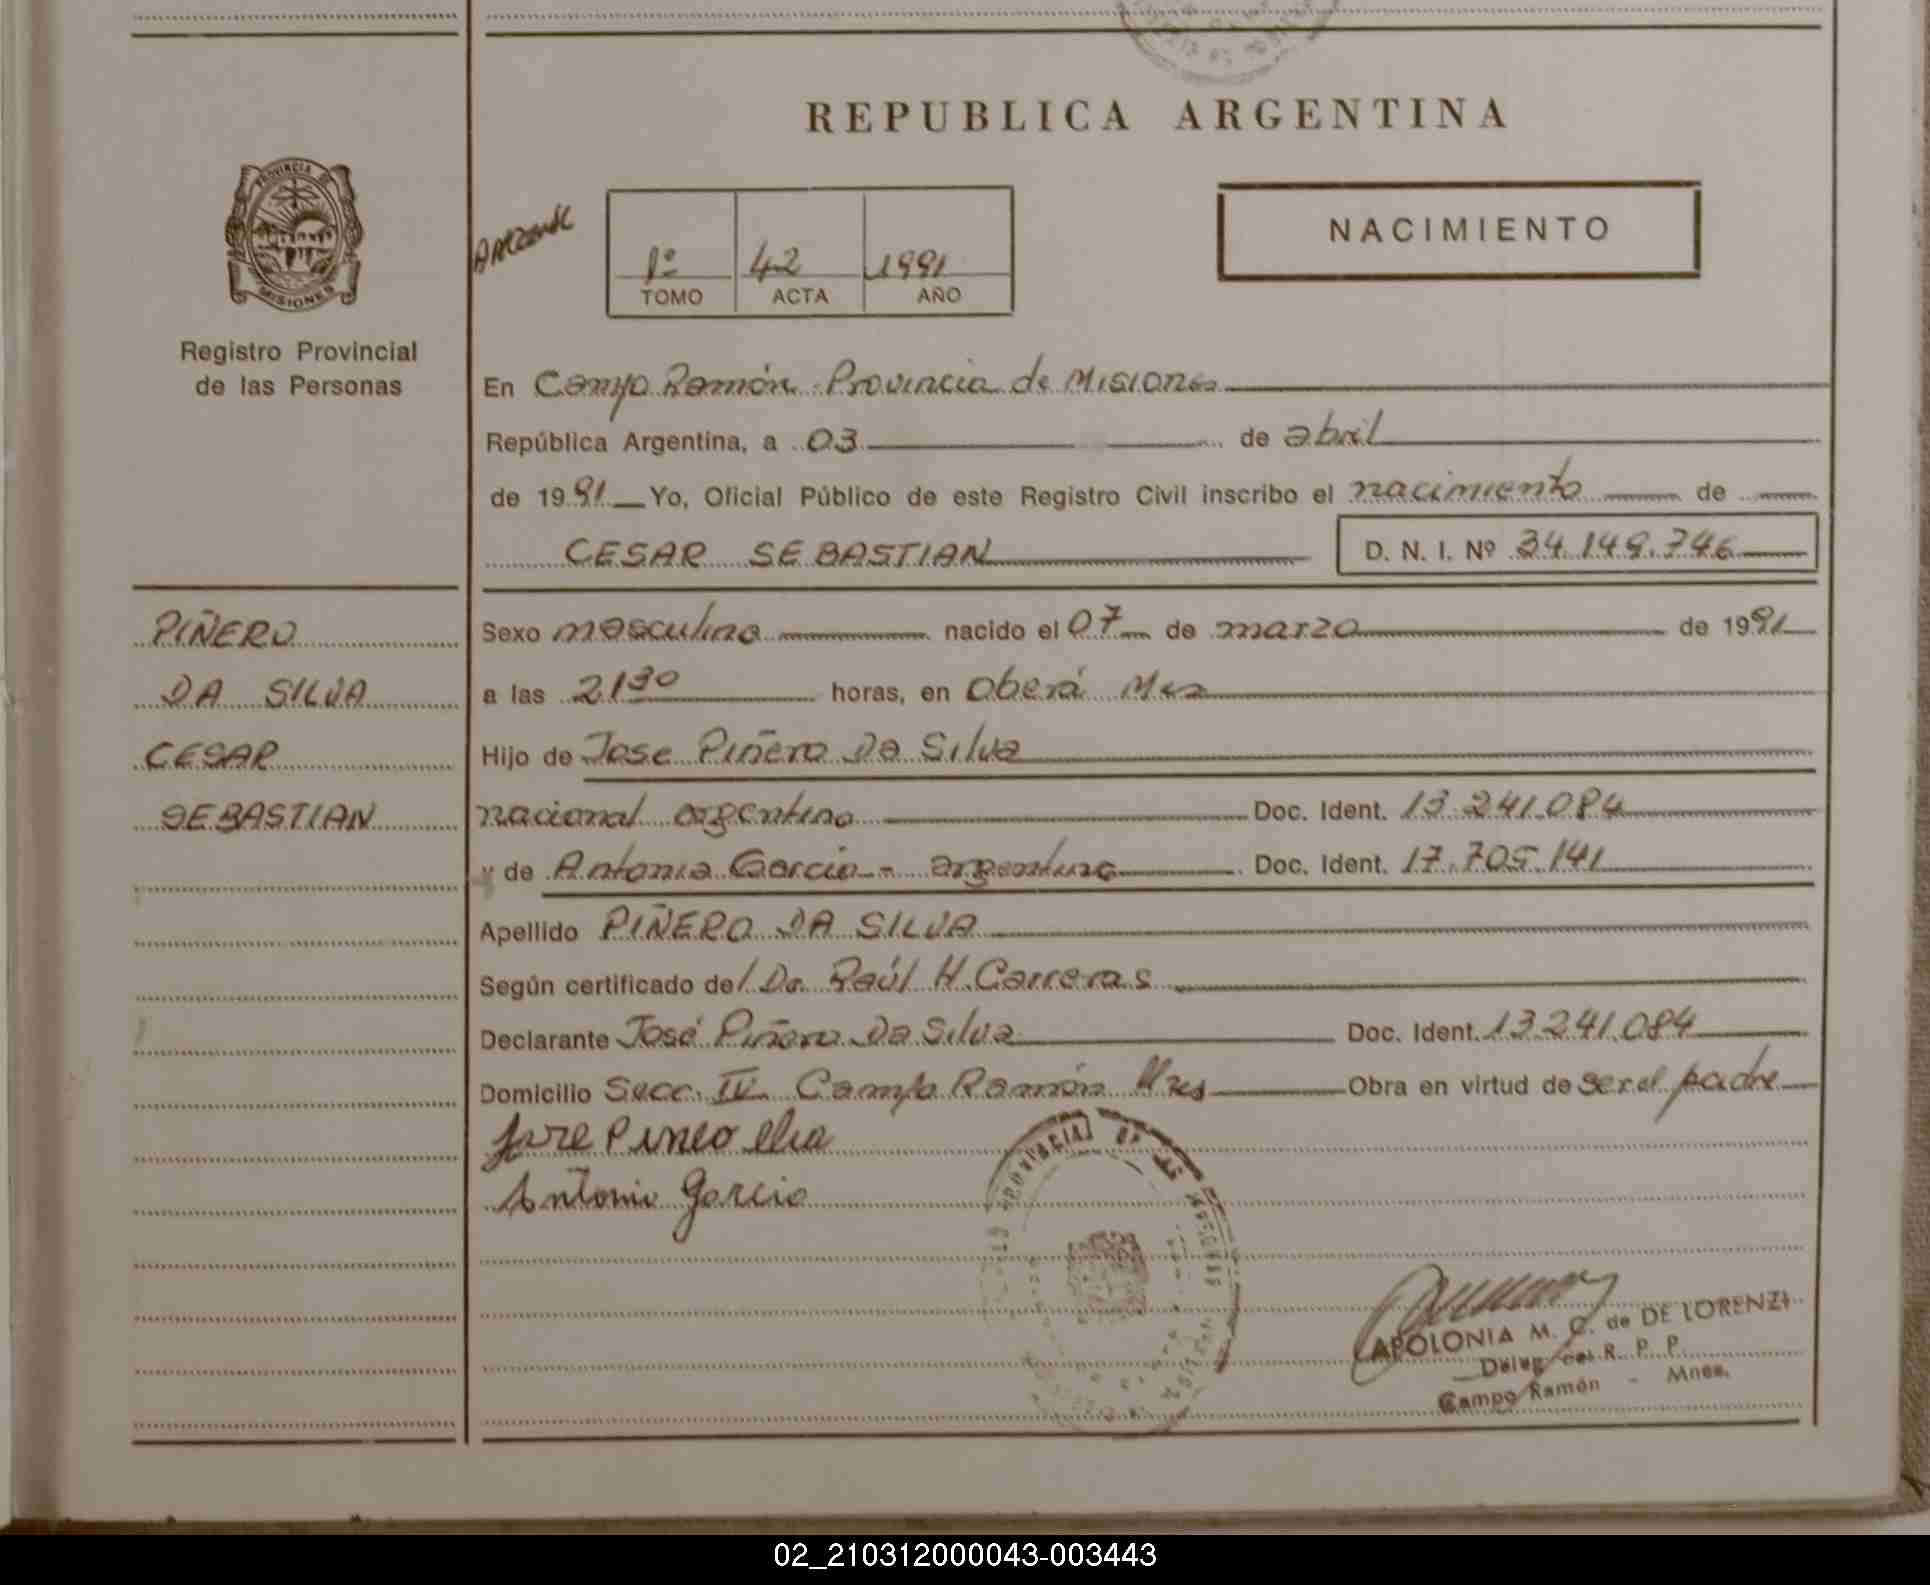 REPUBLICA ARGENTINA
PROVINCIA DE
MISIONES
Registro Provincial
de las Personas
1º 42 1991
TOMO ACTA AÑO
NACIMIENTO
En Campo Ramón Provincia de Misiones
República Argentina, a 03 de abril
de 1991 Yo, Oficial Público de este Registro Civil inscribo el nacimiento de
CESAR SEBASTIAN D. N. I. Nº 34.149.746
PIÑERO
DA SILVA
CESAR
SEBASTIAN
Sexo masculino nacido el 07 de marzo de 1991
a las 21 30 horas, en Oberá Mes
Hijo de Jose Piñero Da Silva
nacional argentino Doc. Ident. 13.241.084
y de Antonia Garcia - argentina Doc. Ident. 17.705.141
Apellido PIÑERO DA SILVA
Según certificado del Dr. Raúl H. Carreras
Declarante José Piñero Da Silva Doc. Ident. 13.241.084
Domicilio Secc. IV Campo Ramón Mnes Obra en virtud de ser el padre
Antonia Garcia
APOLONIA M. C. de DE LORENZI
Deleg. del R. P. P.
Campo Ramón - Mnes.
02_210312000043-003443